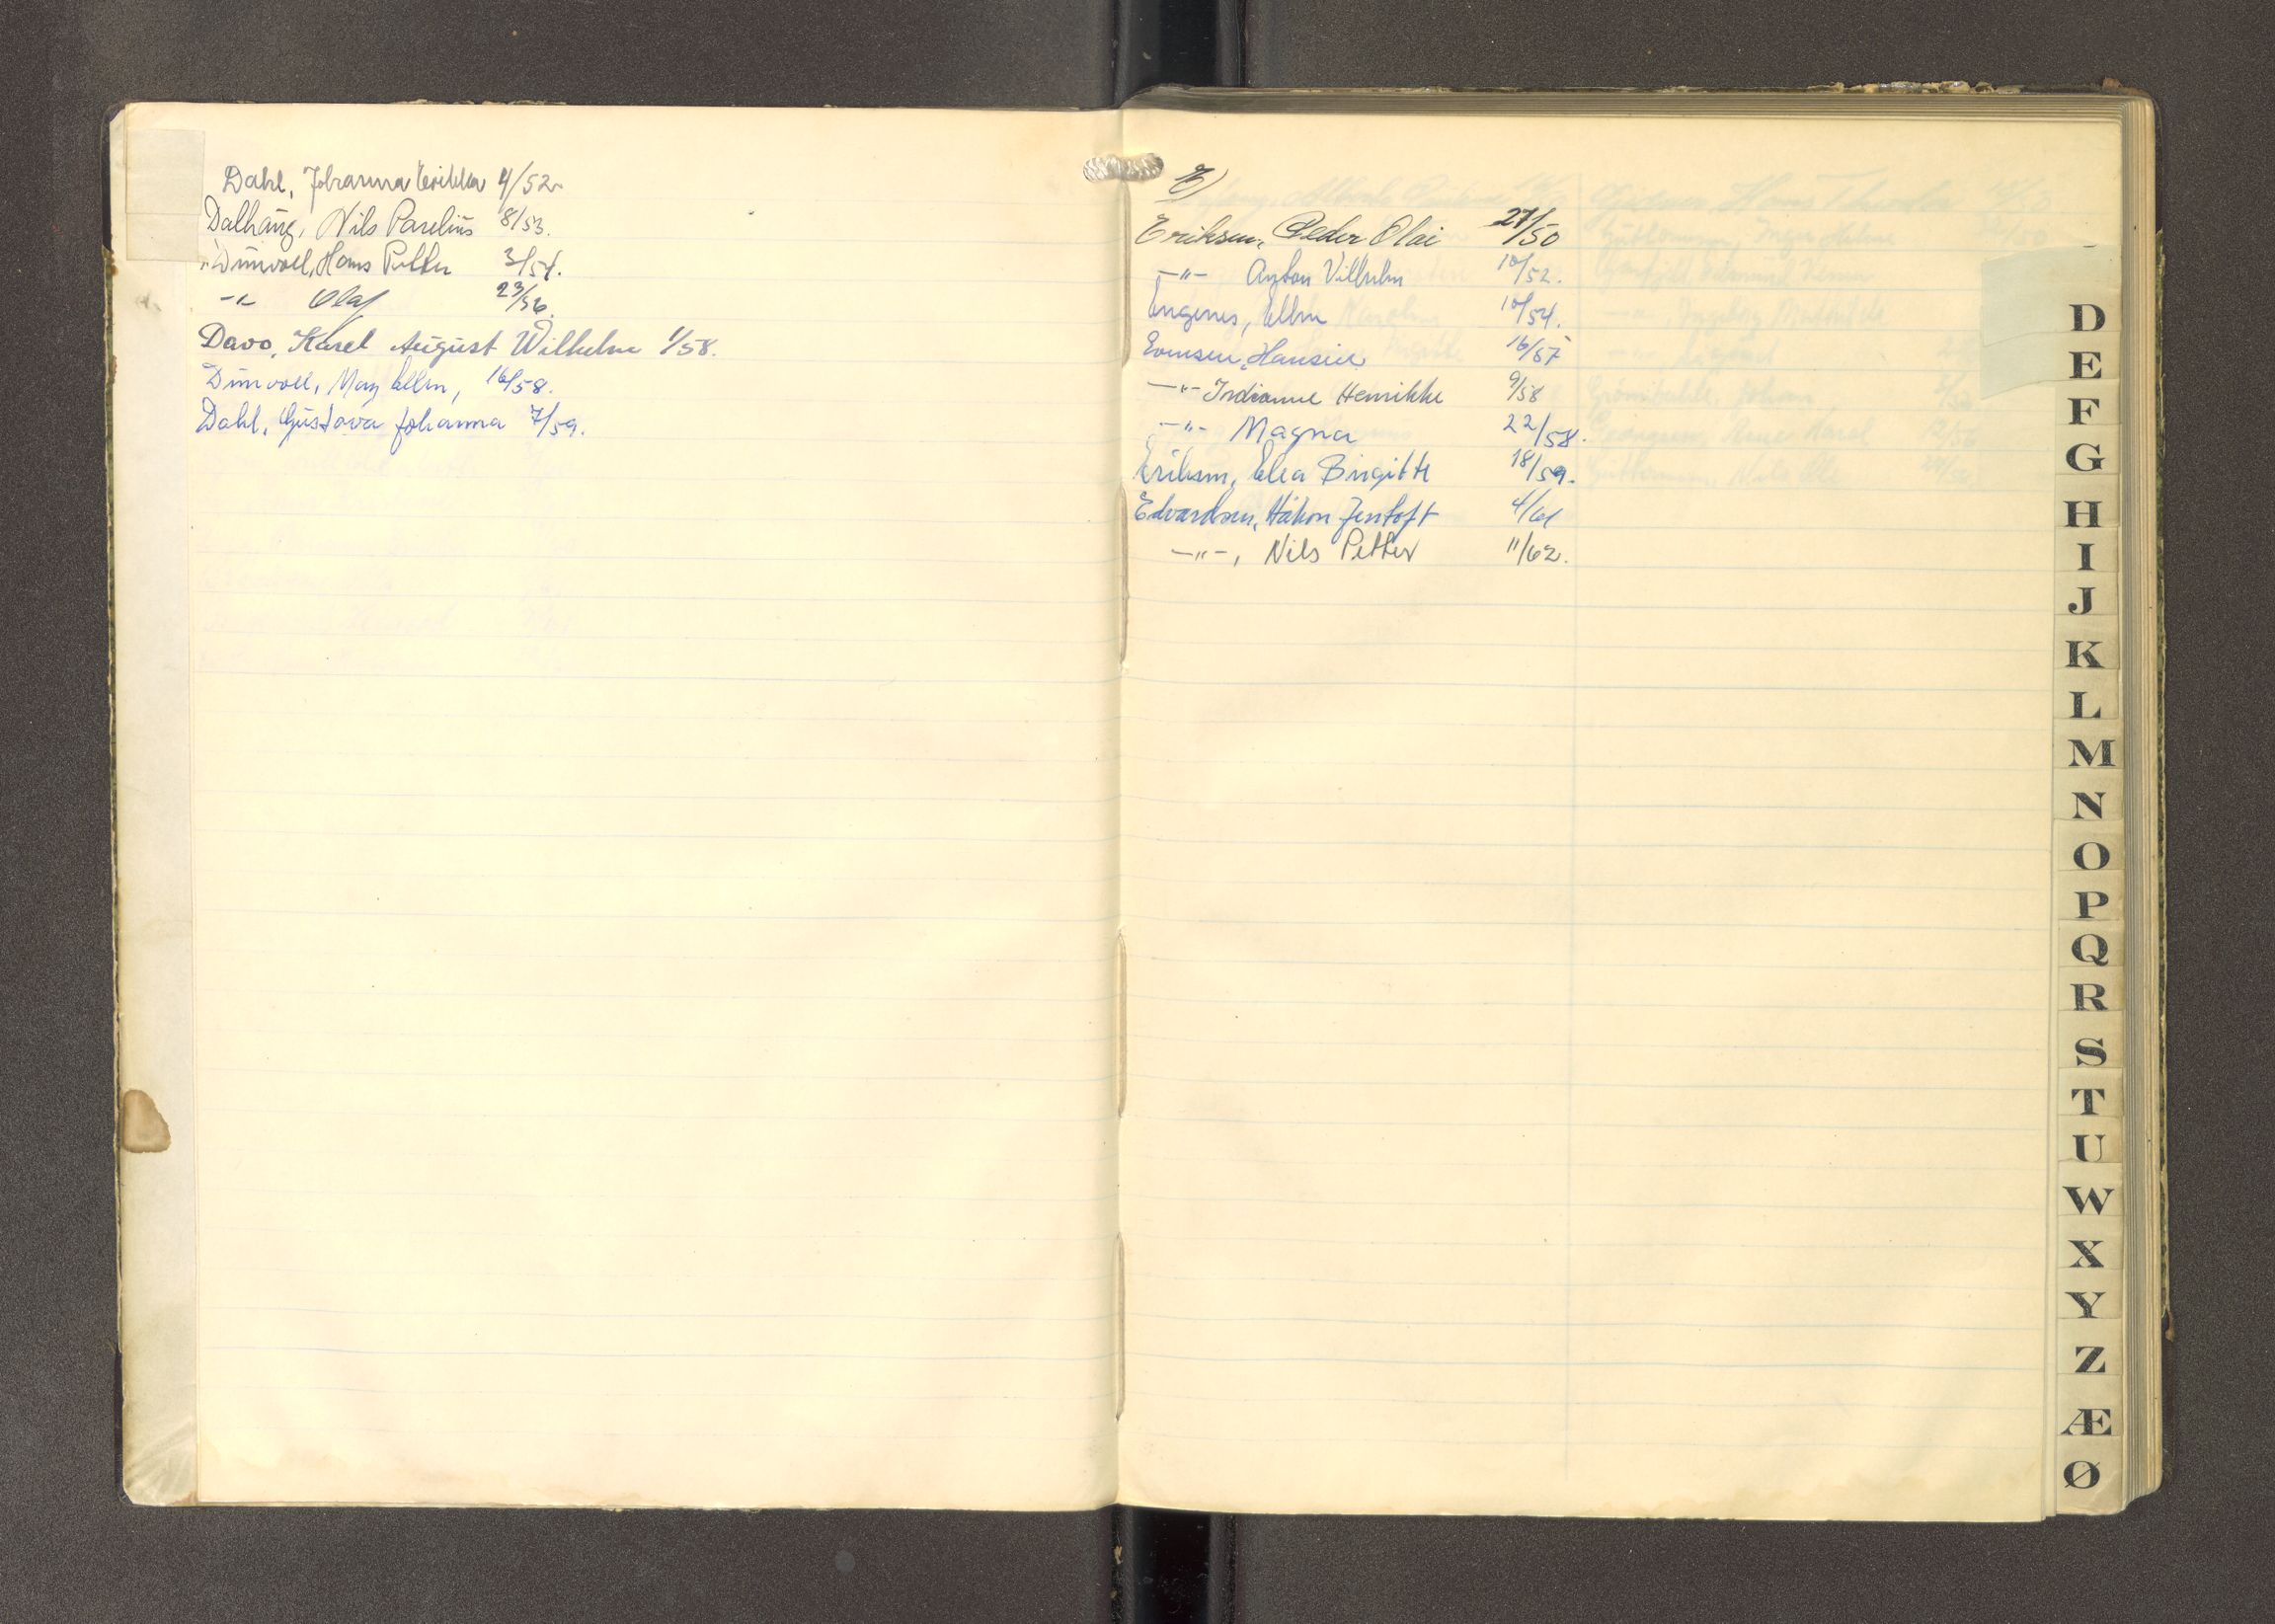 Dahl, Johanna Erikka 4/52.
Dalhaug, Nils Parelius 8/53.
Dunvoll, Hans Petter 3/54.
-"- Olaf 23/56.
Davo, Karel August Wilhelm 1/58.
Dunvoll, May Ellen, 16/58.
Dahl, Gustava Johanna 7/59.
E)
Eriksen, Peder Olai 27/50
-"- Anton Vilhelm 10/52.
Engenes, Ellen 10/54.
Evensen, Hansine 16/57
-"- Indianne Henrikke 9/58
-"- Magna 22/58.
Eriksen, Elea Birgitte 18/59.
Edvardsen, Håkon Jentoft 4/61
-"-, Nils Petter 11/62.
D
E
F
G
H
I
J
K
L
M
N
O
P
Q
R
S
T
U
W
X
Y
Z
Æ
Ø